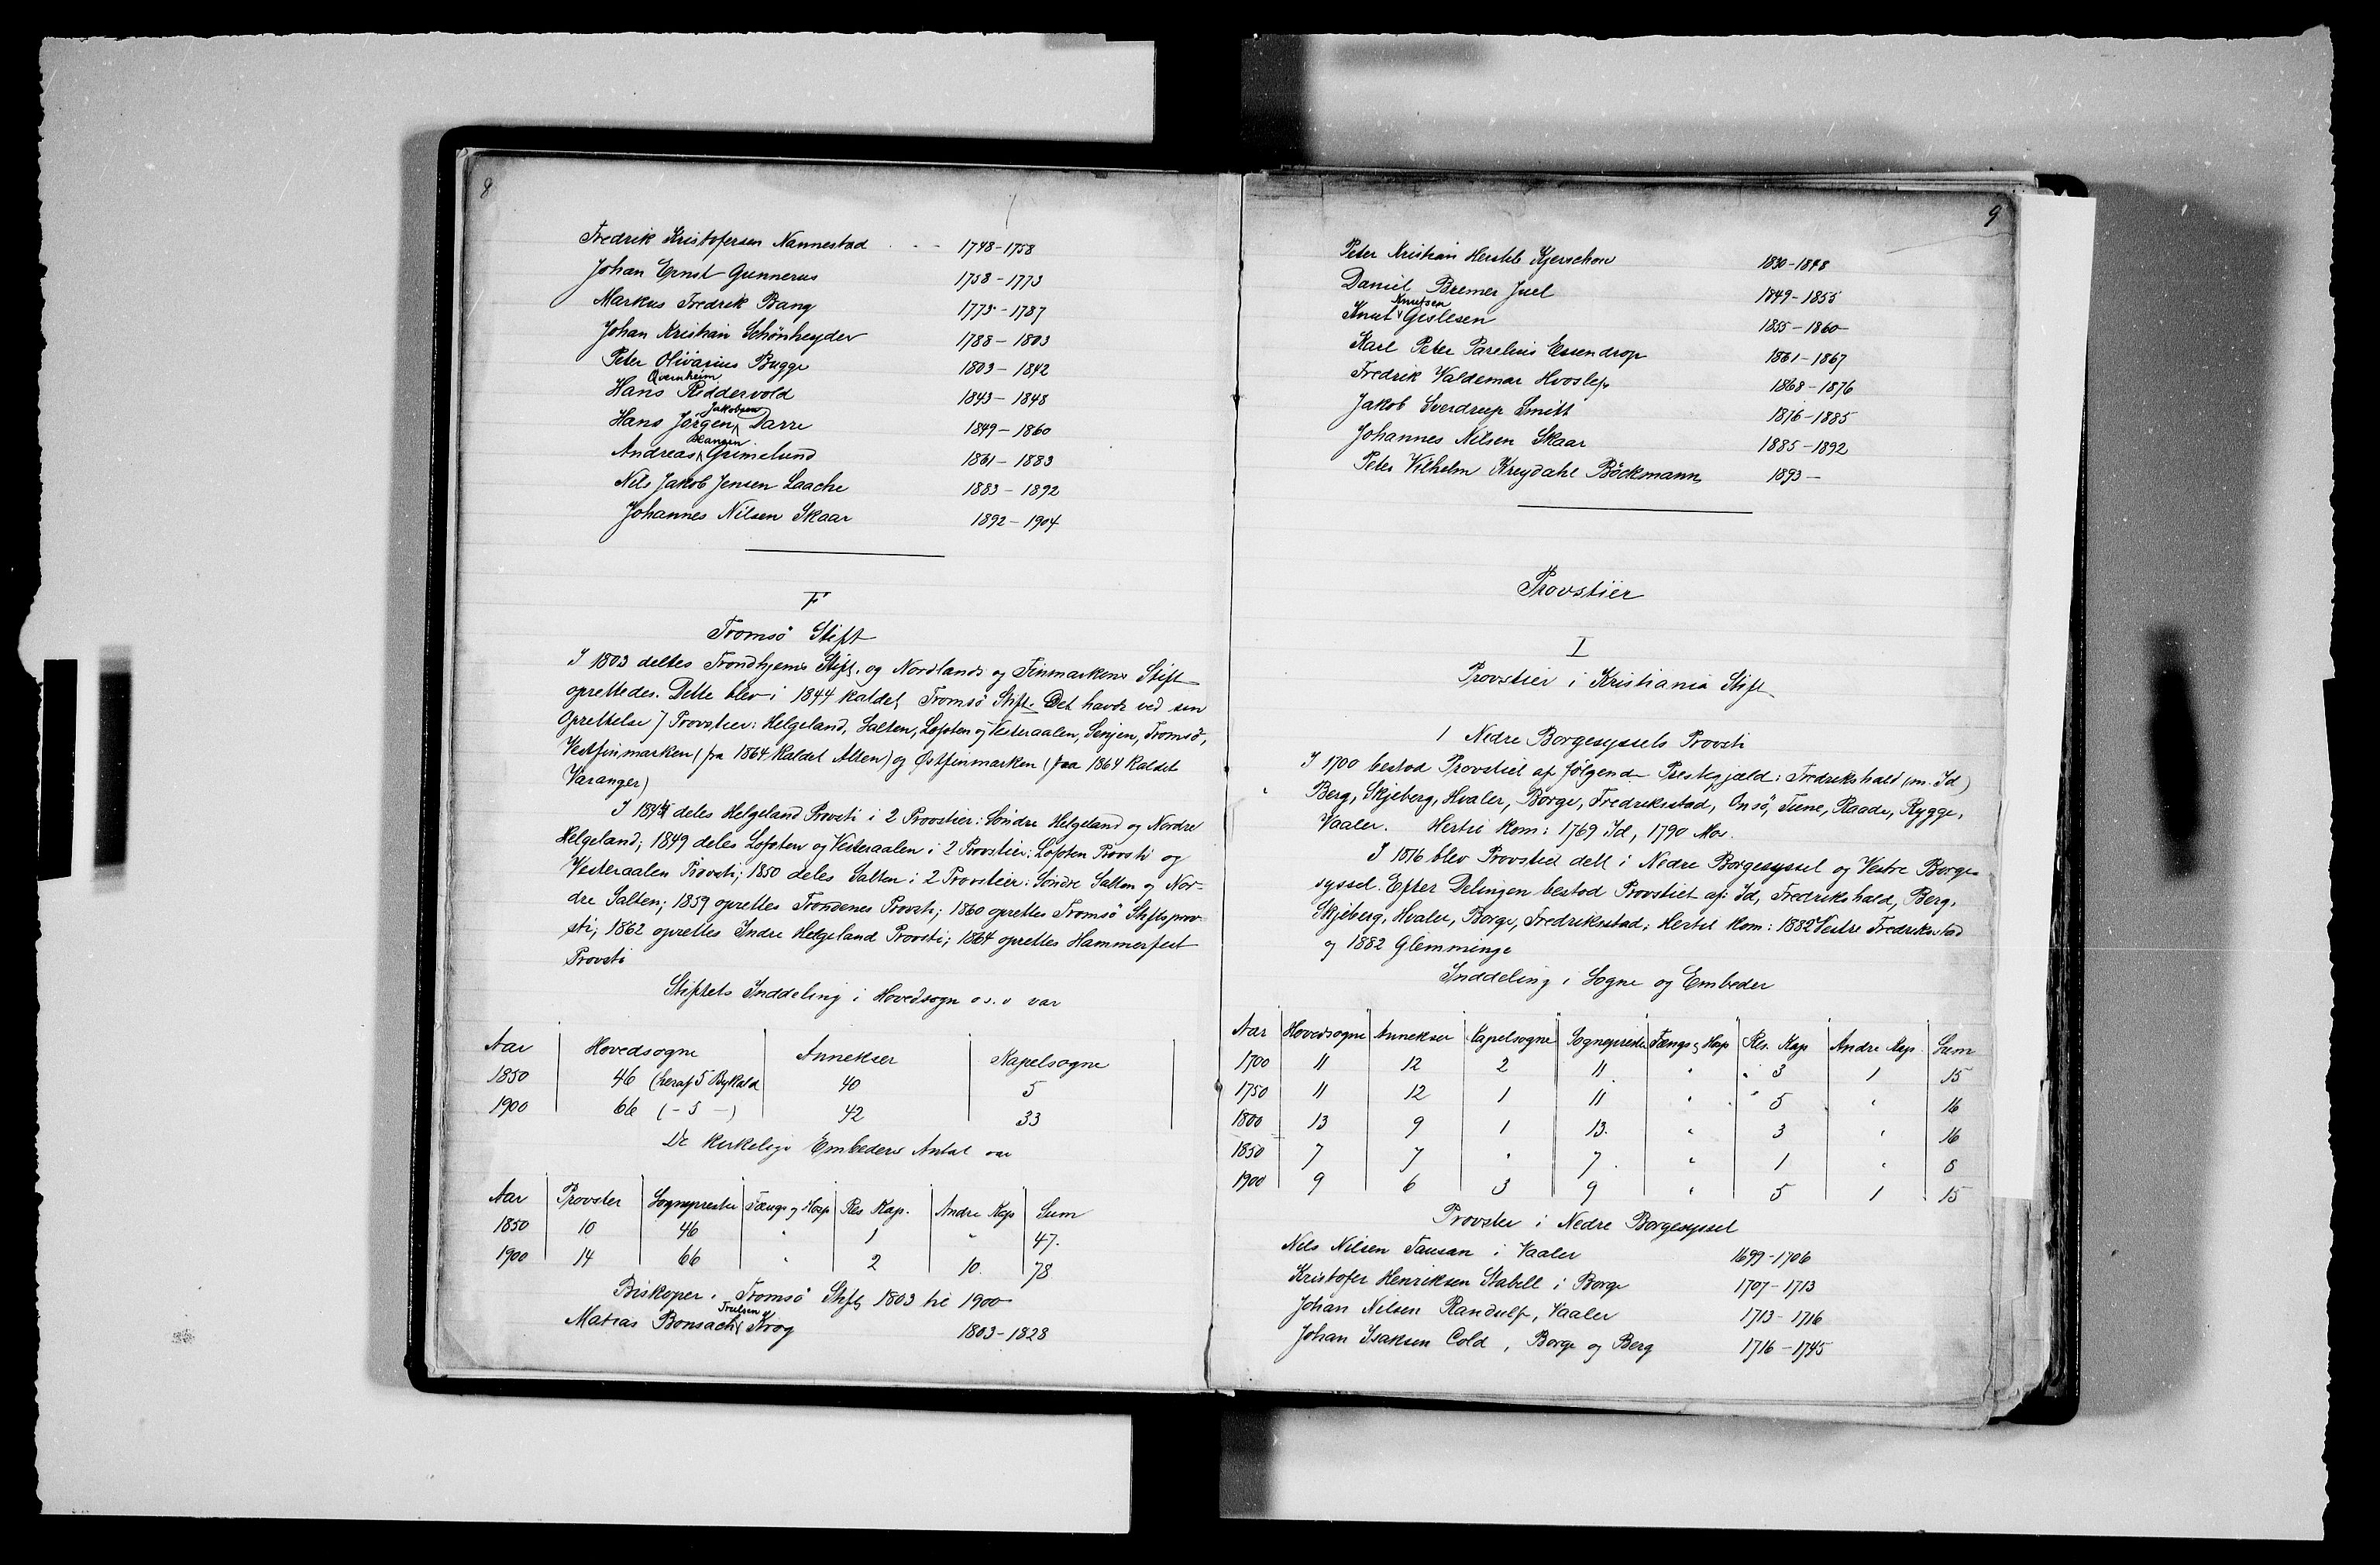 8
Fredrik Kristofersen Nannestad . . . 1748-1758
Johan Ernst Gunnerus 1758-1773
Markus Fredrik Bang 1773-1787
Johan Kristian Schönheyder 1788-1803
Peter Olivarius Bugge 1803-1842
Hans Qvernheim Riddervold 1843-1848
Hans Jörgen Jakobsen Darre 1849-1860
Andreas Grimelund 1861-1883
Nils Jakob Jensen Laache 1883-1892
Johannes Nilsen Skaar 1892-1904
F
Tromsö Stift
I 1803 deltes Trondhjems Stift og Nordlands og Finmarkens Stift
oprettedes. Dette blev i 1844 kaldet Tromsö Stift. Det havde ved sin
Oprettelse 7 Provstier: Helgeland, Salten, Lofoten og Vesteraalen, Senjen, Tromsö,
Vestfinmarken (fra 1864 kaldet Alten) og Østfinmarken (fra 1864 kaldet
Varanger)
I 1844 deles Helgeland Provsti i 2 Provstier: Söndre Helgeland og Nordre
Helgeland; 1849 deles Lofoten og Vesteraalen i 2 Provstier: Lofoten Provsti og
Vesteraalen Provsti; 1850 deles Salten i 2 Provstier: Söndre Salten og Nor-
dre Salten; 1859 oprettes Trondenes Provsti; 1860 oprettes Tromsö Stiftsprov-
sti; 1862 oprettes Indre Helgeland Provsti; 1864 oprettes Hammerfest
Provsti
Stiftets Inddeling i Hovedsogn o.s.v var
Aar Hovedsogne Annekser Kapelsogne
1850 46 (heraf 5 Bykald 40 5
1900 66 (- 5 -) 42 33
De kirkelige Embeders Antal var
Aar Provster Sogneprester Fængs og Hosp Res Kap. Andre Kap Sum
1850 10 46 " 1 " 47.
1900 14 66 " 2 10. 78
Biskoper i Tromsö Stift 1803 til 1900
Matias Bonsach Trulsen Krog 1803-1828
9
Peter Kristian Hersleb Kjerschow 1830-1848
Daniel Bremer Juel 1849-1855
Knut Knutsen Gislesen 1855-1860
Karl Peter Parelius Essendrop 1861-1867
Fredrik Valdemar Hvoslef 1868-1876
Jakob Sverdrup Smitt 1876-1885
Johannes Nilsen Skaar 1885-1892
Peter Vilhelm Kreydahl Böckmann 1893-
Provstier
I
Provstier i Kristiania Stift
1 Nedre Borgesyssels Provsti
I 1700 bestod Provstiet af følgende Prestegjæld: Fredrikshald (m. Id)
Berg, Skjeberg, Hvaler, Borge, Fredriksstad, Onsö, Tune, Raade, Rygge,
Vaaler. Hertil kom: 1769 Id, 1790 Mos.
I 1816 blev Provstiet delt i Nedre Borgesyssel og Vestre Borge-
syssel. Efter Delingen bestod Provstiet af: Id, Fredrikshald, Berg,
Skjeberg, Hvaler, Borge, Fredriksstad; Hertil kom: 1882 Vestre Fredriksstad
og 1882 Glemminge
Inddeling i Sogne og Embeder
Aar Hovedsogne Annekser Kapelsogne Sogneprester Fængs og Hosp Res. Kap Andre Kap. Sum
1700 11 12 2 11. " " 3 1 15
1750 11 12 1 11 " " 5 " 16
1800 13 9 1 13. " 3 " 16
1850 7 7 " 7. " 1 " 8
1900 9 6 3 9 " 5 1 15
Provster i Nedre Borgesyssel
Nils Nilsen Tausan i Vaaler 1699-1706
Kristofer Henriksen Stabell i Borge 1707-1713
Johan Nilsen Randulf, Vaaler 1713-1716
Johan Isaksen Cold, Borge og Berg 1716-1745